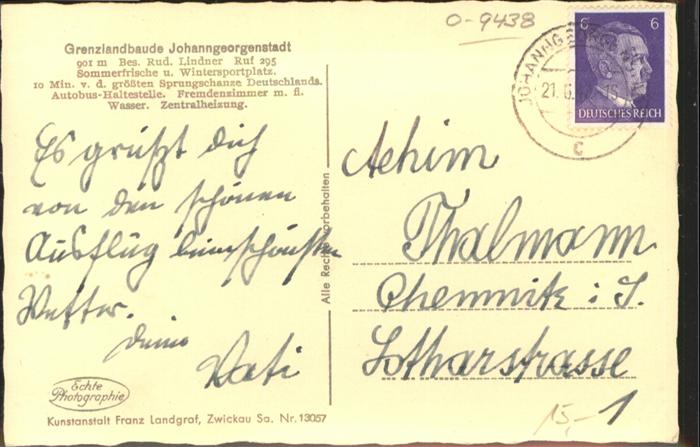 O-9438
Grenzlandbaude Johanngeorgenstadt
901 m Bes. Rud. Lindner Ruf 295
Sommerfrische u. Wintersportplatz.
10 Min. v. d. größten Sprungschanze Deutschlands.
Autobus-Haltestelle. Fremdenzimmer m. fl.
Wasser. Zentralheizung.
Es grüßt dich
von den schönen
Ausflug beim schönsten
Wetter.
Deine
Kati
Echte
Photographie
Kunstanstalt Franz Landgraf, Zwickau Sa. Nr. 13057
Alle Rechte vorbehalten
6 6
DEUTSCHES REICH
21. 6.
c
Achim
Thalmann
Chemnitz i. S.
Lotharstrasse
15,- 1